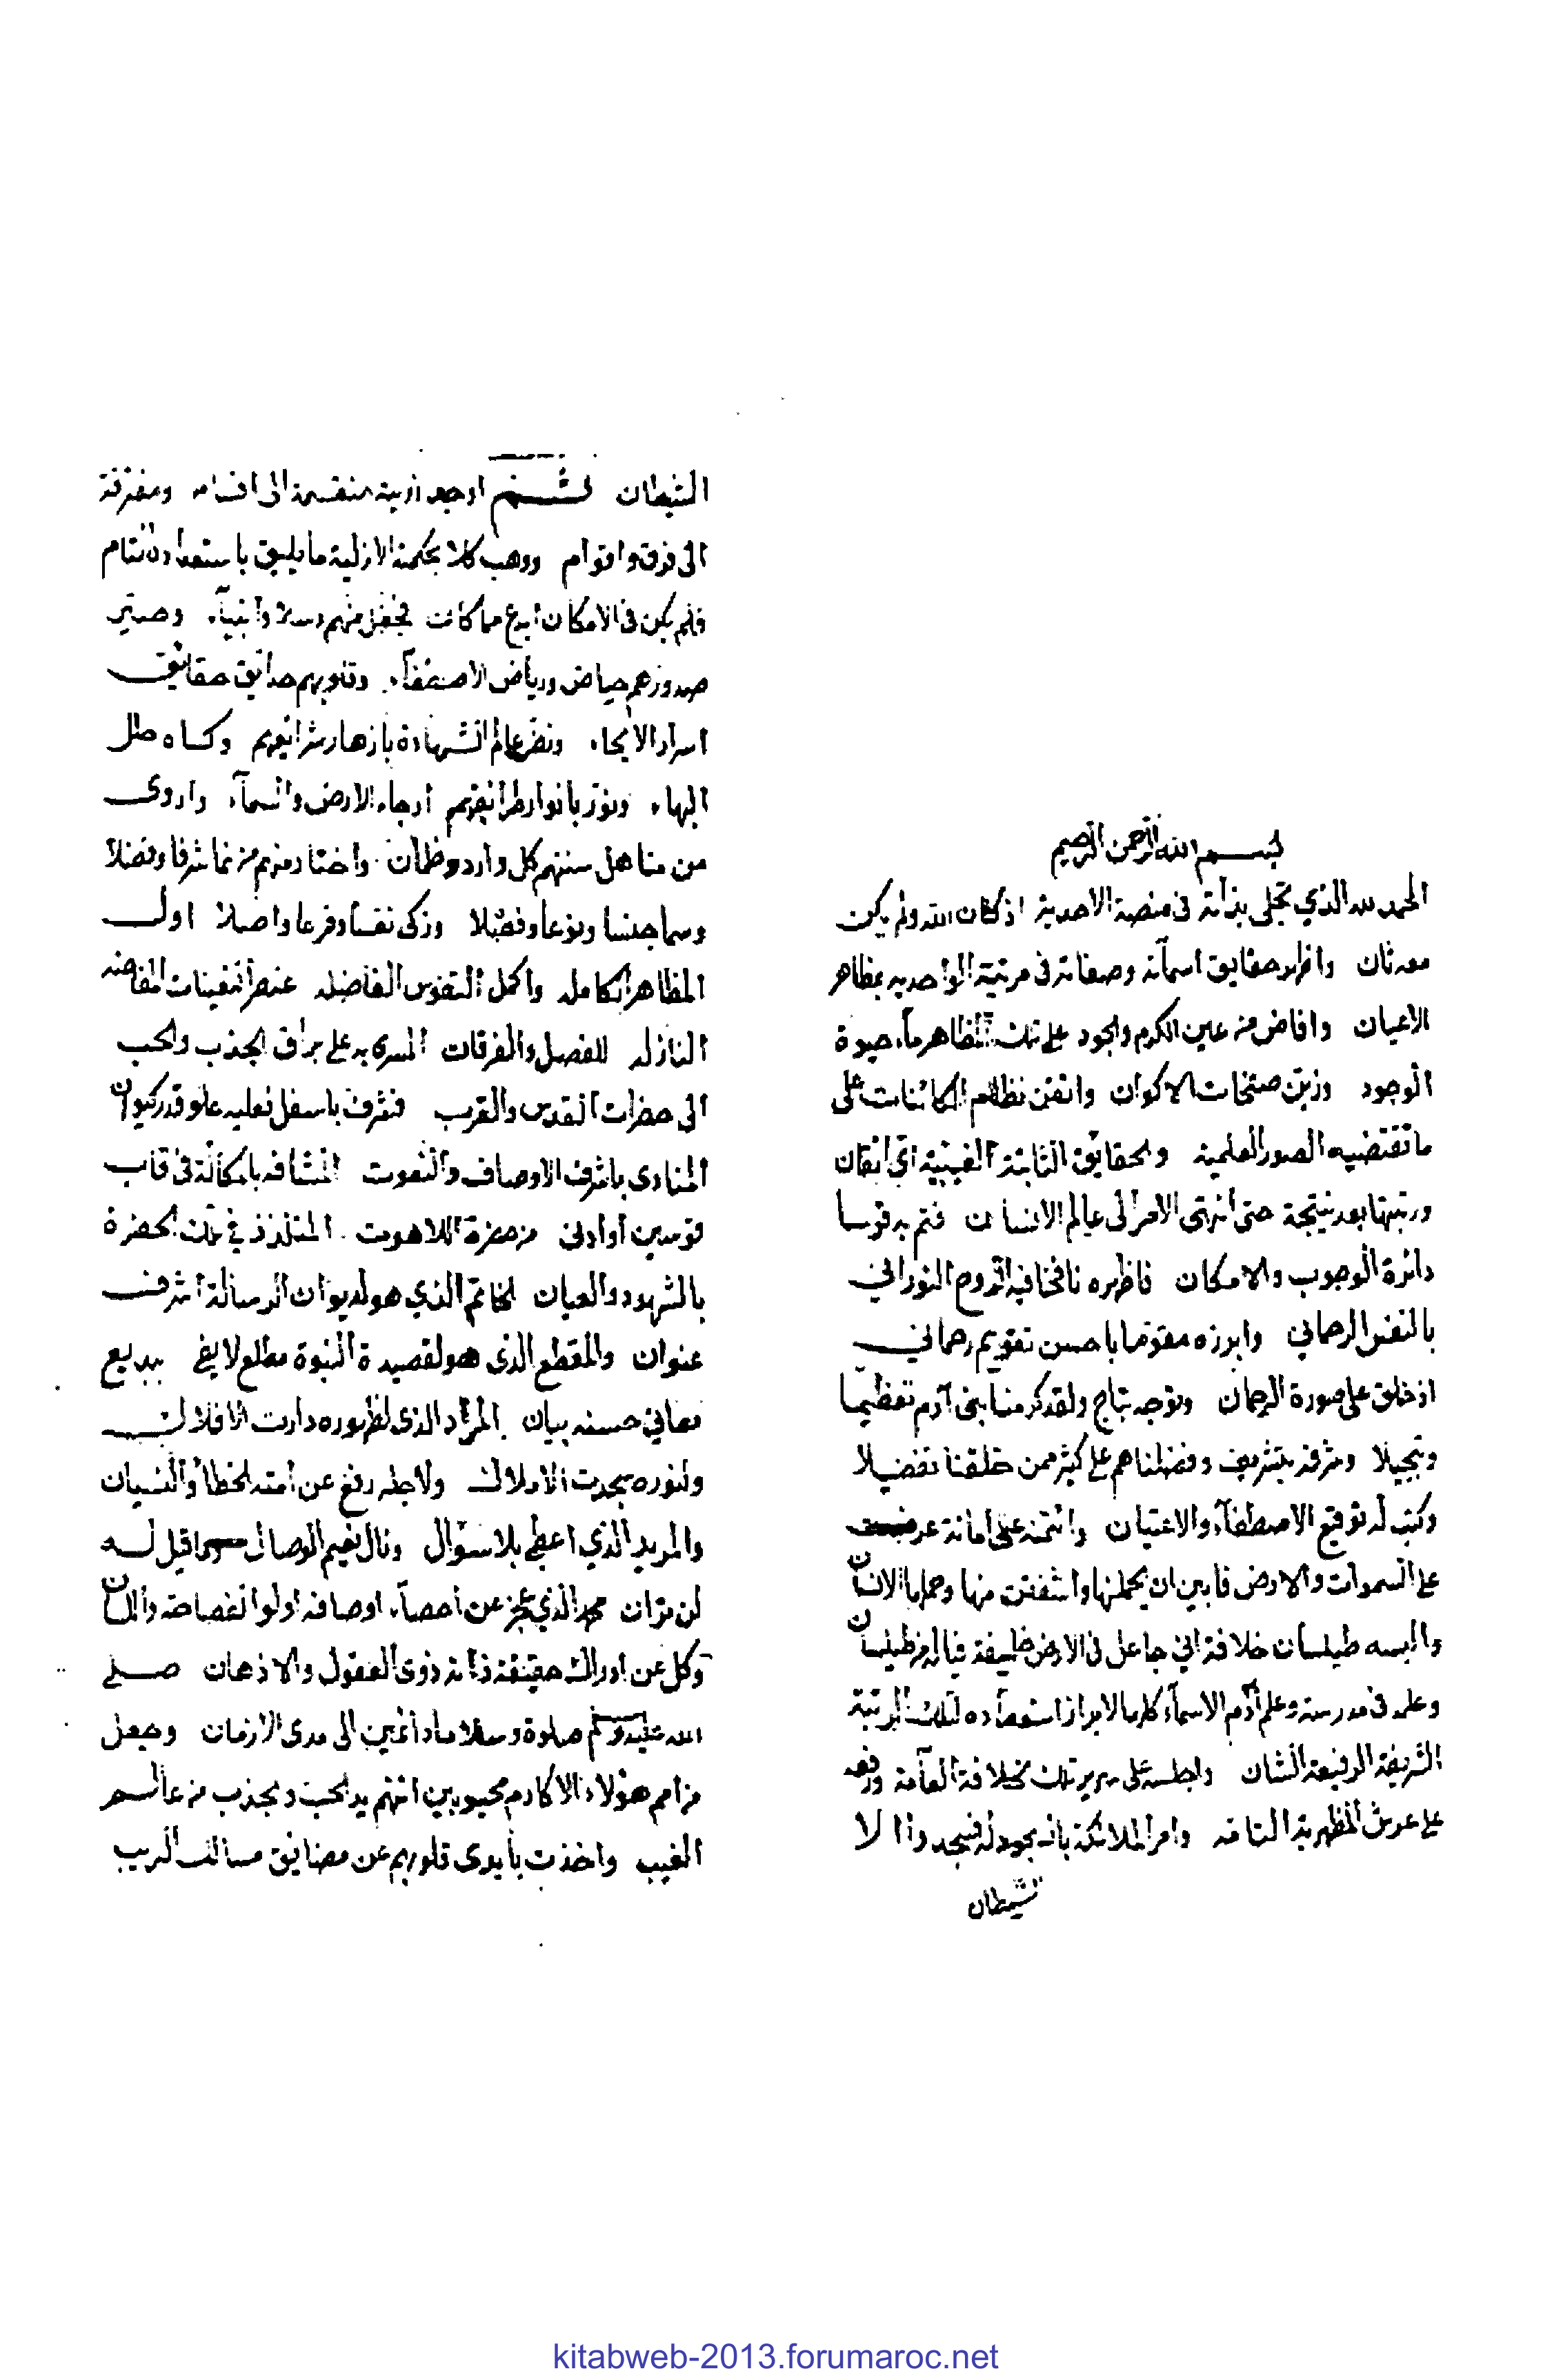 بسم الله الرحمن الرحيم
الحمد لله الذي تجلى بذاته في منصة الاحدية اذ كان الله ولم يكن
معه ثان واظهر حقايق اسمآئه وصفاته في مرتبة الواحديه بمظاهر
الاعيان وافاض من عين الكرم والجود على تلك المظاهر مآء حيوة
الوجود وزين صفحات الاكوان واتقن نظام الكائنات على
ما تقتضيه الصور العلمية والحقايق الثابتة الغيبية اي اتقان
ورتبها بعد نتيجة حتى انتهى الامر الى عالم الانسان فتم به قوسا
دائرة الوجوب والامكان فاظهره نافخا فيه الروح النوراني
بالنفس الرحماني وابرزه مقوما باحسن تقويم رحماني
اذ خلق على صورة الرحمان وتوجه بتاج ولقد كرمنا بني آدم تعظيما
وتبجيلا وشرفه بتشريف وفضلناهم على كثير ممن خلقنا تفضيلا
وكتب له توقيع الاصطفآء والاعتيان وائتمنه على امانة عرضت
على السموات والارض فابين ان يحملنها واشفقن منها وحملها الانسان
والبسه طيلسان خلافة اني جاعل في الارض خليفة فيا له من طيلسان
وعلمه في مدرسة وعلم آدم الاسمآء كلها لابراز استعداده لتلك المرتبة
الشريفة الرفيعة الشان واجلسه على سرير تلك الخلافة العآمة ورفعه
على عرش المظهرية التامه وامر الملائكة بالسجود له فسجدوا الا
الشيطان
الشيطان ثم اوجد ذريته منقسمة الى اقسام ومفترقة
الى فرق واقوام ووهب كلا بحكمته الازلية ما يليق باستعداده التام
فلم يكن في الامكان ابدع مما كان فجعل منهم رسلا وانبيآء وصير
صدورهم حياض ورياض الاصطفآء وقلوبهم حدائق حقائق
اسرار ونضر عالم الشهادة بازهار شرائعهم وكساه حلل
البهاء ونور بانوار طرائقهم ارجاء الارض والسمآء واروى
من مناهل سننهم كل وارد وظمآن واختار منهم من نما شرفا وفضلا
وسما جنسا ونوعا وفصلا وزكى نفسا وفرعا واصلا اول
المظاهر الكامله واكمل النفوس الفاضله عنصر التعينات
النازله للفصل والفرقان المسرى به على براق الجذب والحب
الى حضرات القدس والقرب فتشرف باسفل نعليه علو قدر كيوان
المنادى باشرف الاوصاف والنعوت المشافه بالمكالمة في قاب
قوسين او ادنى من حضرة اللاهوت المتلذذ في تلك الحضرة
بالشهود والعيان الخاتم الذي هو لديوان الرسالة اشرف
عنوان والمقطع الذي هو لقصيدة النبوة مطلع لا يفي ببديع
معاني حسنه بيان المراد الذي لظهوره دارت الافلاك
ولنوره سجدت الاملاك ولاجله رفع عن امته الخطأ والنسيان
والمريد الذي اعطي بلا سؤال ونال نعيم الوصال قيل له
لن تراني محمد الذي عجز عن احصآء اوصافه اولو الفصاحة واللسان
وكل عن ادراك حقيقة ذاته ذوى العقول والاذهان صلى
الله عليه وسلم صلوة وسلاما دائمين الى مدى الازمان وجعل
من امم هؤلاء الاكارم محبوبين يد الحب والجذب من عالم
الغيب واخذت بايدى قلوبهم عن مضايق مسالك الريب
kitabweb-2013.forumaroc.net